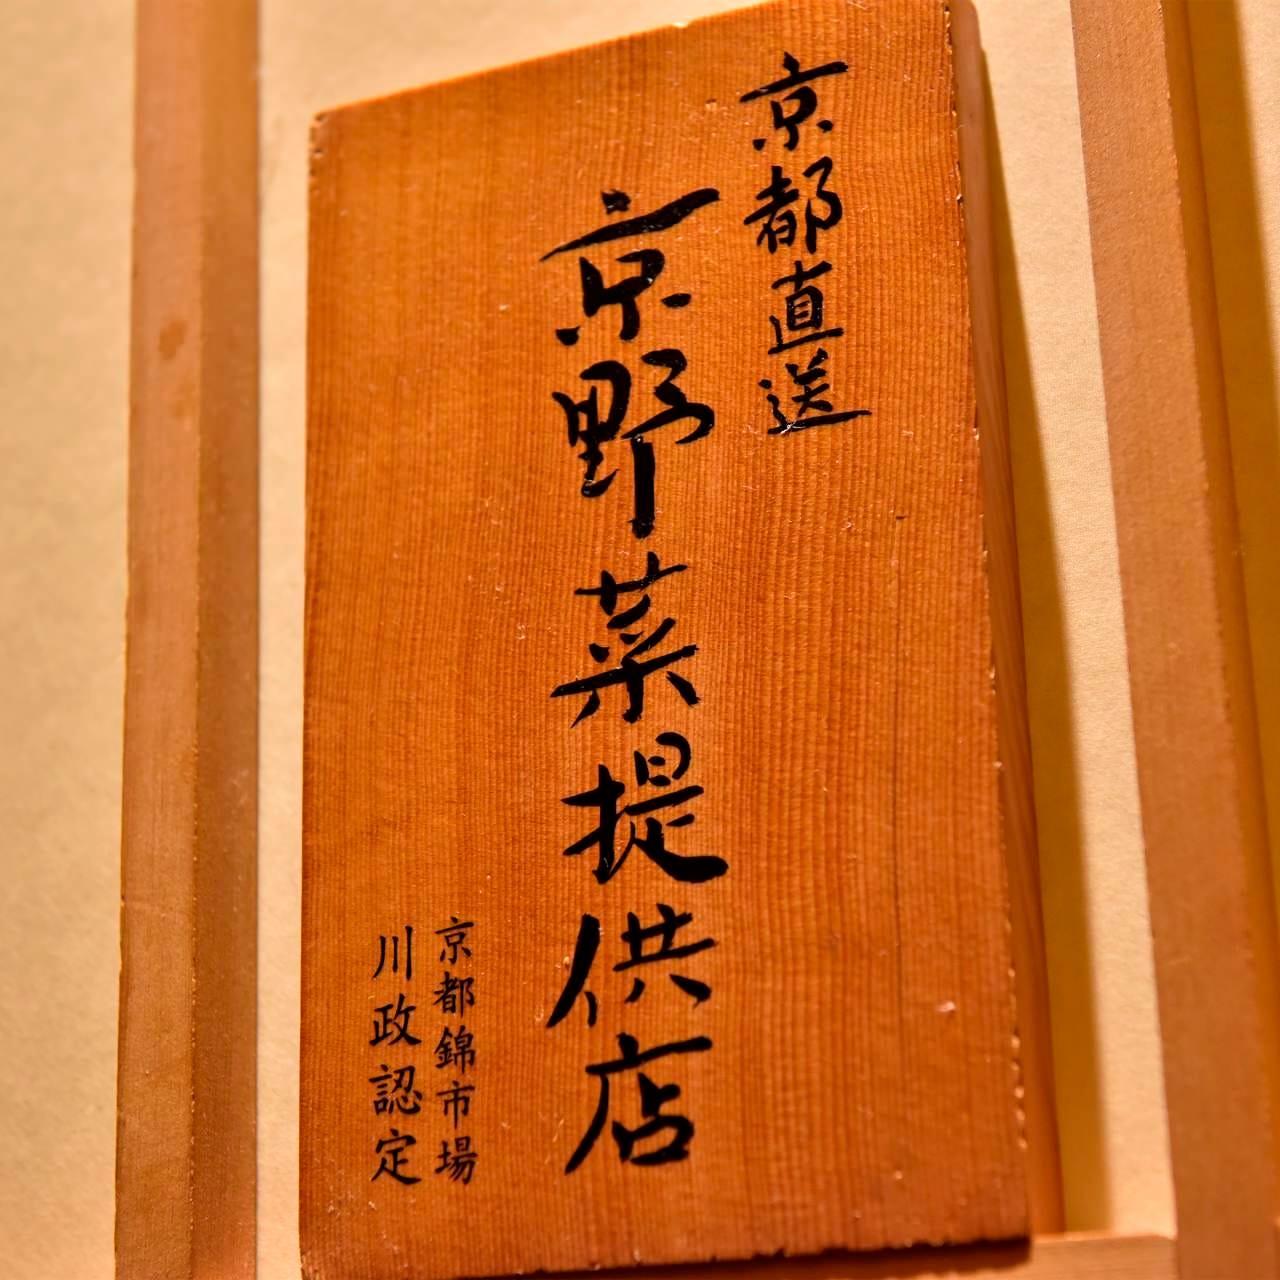 京都直送
京野菜提供店
京都錦市場
川政認定